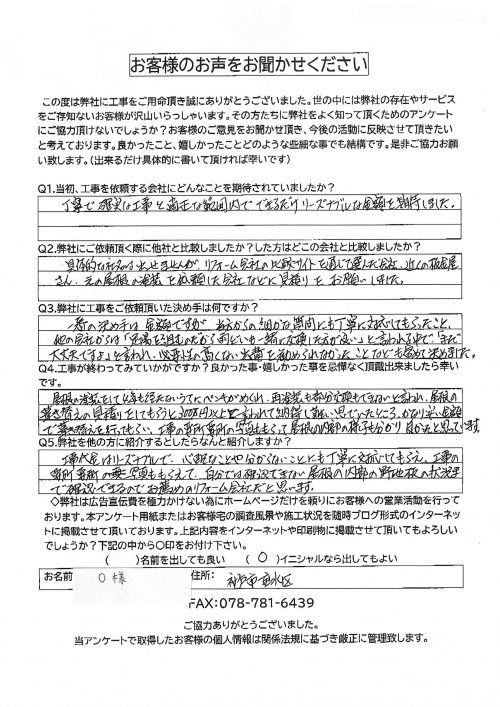 お客様のお声をお聞かせください
この度は弊社に工事をご用命頂き誠にありがとうございました。世の中には弊社の存在やサービス
をご存知ないお客様が沢山いらっしゃいます。その方たちに弊社をよく知って頂くためのアンケート
にご協力頂けないでしょうか？お客様のご意見をお聞かせ頂き、今後の活動に反映させて頂きたい
と考えております。良かったこと、嬉しかったことどのような些細な事でも結構です。是非ご協力お願
い致します。（出来るだけ具体的に書いて頂ければ幸いです）
Q1.当初、工事を依頼する会社にどんなことを期待されていましたか？
丁寧で確実な工事と適正な範囲内でできるだけリーズナブルな金額を期待しました。
Q2.弊社にご依頼頂く際に他社と比較しましたか？した方はどこの会社と比較しましたか？
具体的な社名は出せませんが、リフォーム会社の比較サイトを通じて選んだ会社、近くの板金屋
さん、元の屋根の塗装を依頼した会社などに見積りをお願いしました。
Q3.弊社に工事をご依頼頂いた決め手は何ですか？
一番の決め手は金額ですが、私からの細かな質問にも丁寧に対応してもらったこと、
他の会社からは「足場を組むのだから雨どいも一緒に交換した方が良い」と言われる中で「まだ
大丈夫ですよ」と言われ、必要性の高くない出費を勧められなかったことなども含めて決めました。
Q4.工事が終わってみていかがですか？良かった事・嬉しかった事を忌憚なく頂戴出来ましたら幸
いです。
屋根の塗装をして4年も経たないうちにペンキがめくれ、再塗装も部分交換もできないと言われ、屋根の
葺き替えの見積りをしてもらうと200万円以上と言われて納得て難い思いでいたところ、かなり安い金額
で葺き替えを行ってもらい、工事の要所要所の写真ももらえて屋根の内部の様子も分かり良かったと思っています。
Q5.弊社を他の方に紹介するとしたらなんと紹介しますか？
工事代金はリーズナブルで、心配なことや分からないことにも丁寧に対応してもらえ、工事の
要所要所の写真ももらえて、自分では確認できない屋根の内部の野地板の状況まで
確認できるのでお薦めのリフォーム会社だと思います。
◇弊社は広告宣伝費を極力かけない為にホームページだけを頼りにお客様への営業活動を行って
おります。本アンケート用紙またはお客様宅の調査風景や施工状況を随時ブログ形式のインターネッ
トに掲載させて頂いております。上記内容をインターネットや印刷物に掲載させて頂いてもよろしい
でしょうか？下記の中から〇印をお付け下さい。
（　　）名前を出しても良い　（ 〇 ）イニシャルなら出してもよい
お名前　O 様　住所：　神戸市垂水区
FAX:078-781-6439
ご協力ありがとうございました。
当アンケートで取得したお客様の個人情報は関係法規に基づき厳正に管理致します。